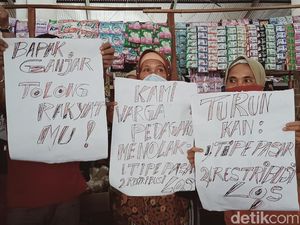 BAPAK
GANJAR
TOLONG
RAKYAT
MU!
KAMI
WARGA
PEDAGANG
MENOLAK:
1 TIPE PASAR
2 RESTRIBUSI
LOS
TURUN
KAN:
1 TIPE PASAR
2 RESTRIBUSI
LOS
detikcom